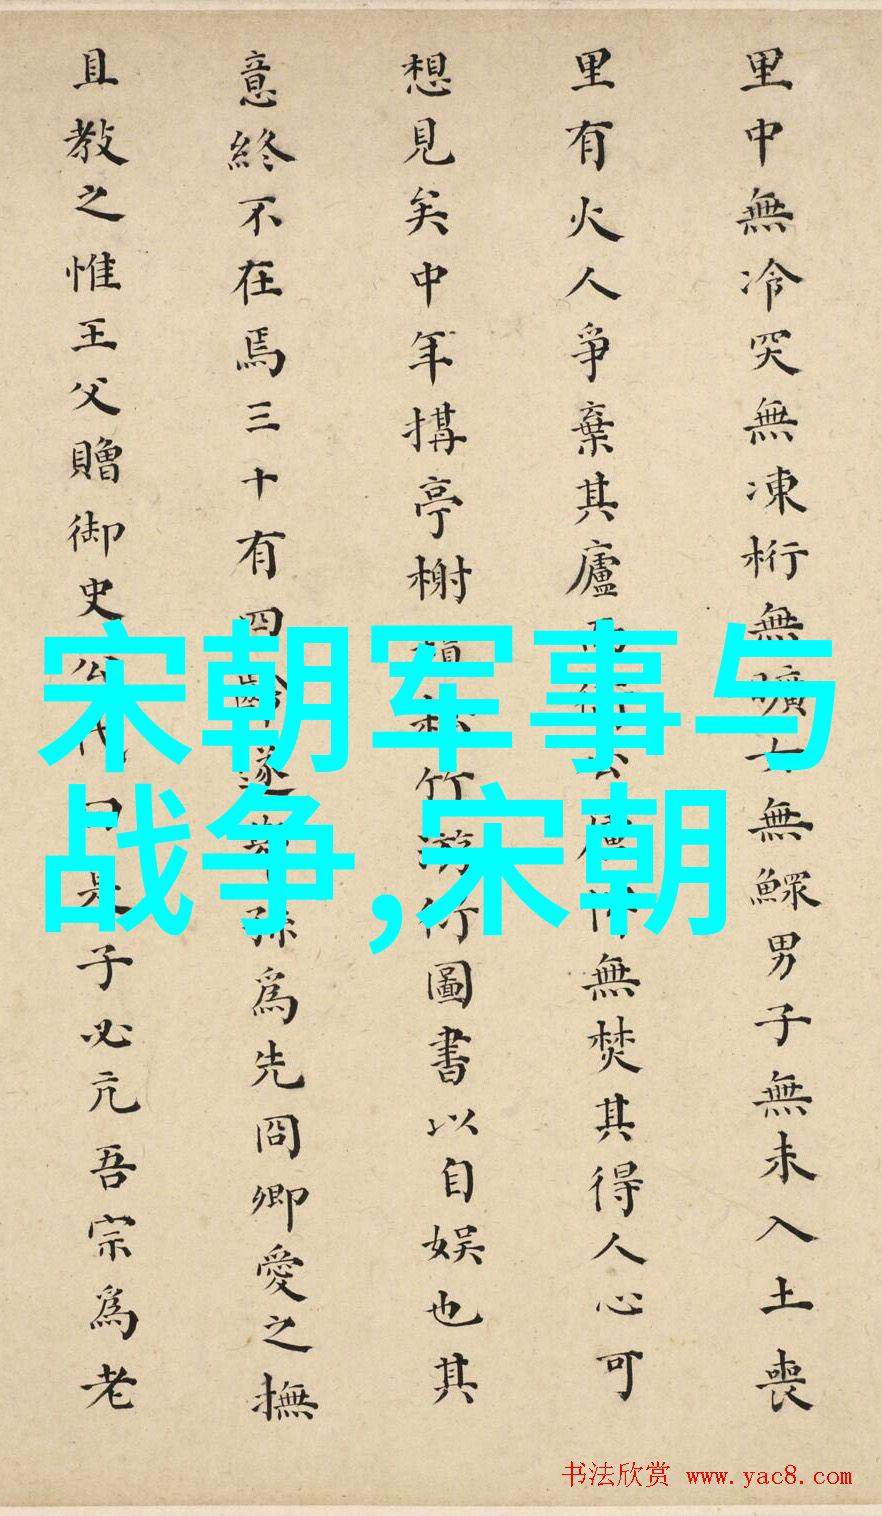 里中無冷突無凍桁無曠女無鰥男子無未入土喪
里有火人爭棄其廬無焚其得人心可
想見矣中年搆亭榭竹游行圖書以自娛也其
意終不在焉三十有四齡遂孫爲先冏卿愛之撫
且教之惟王父贈御史公代曰是子必亢吾宗爲老
宋朝军事与
战争,宋朝
书法欣赏 www.yac8.com